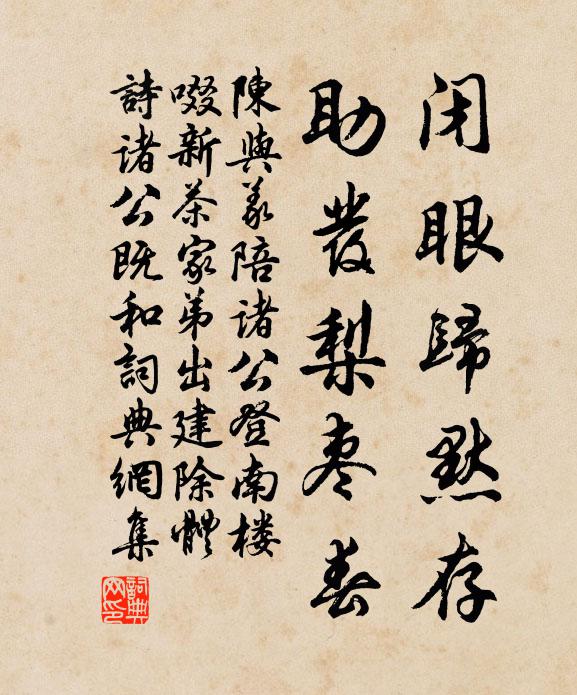 闭眼歸默存
助發梨棗春
陳與義陪诸公登南楼
啜新茶家弟出建除體
詩诸公既和詞典網集
詞典网印